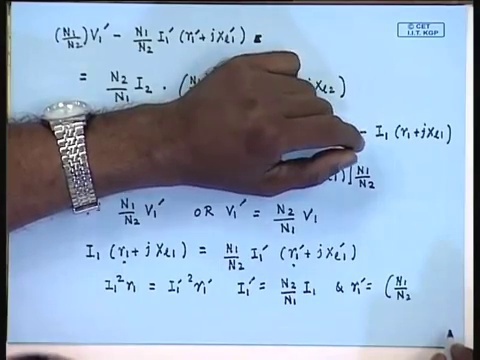 © CET
I.I.T. KGP
(N1/N2) V1' - N1/N2 I1' (r1' + jxl1')
= N2/N1 I2 · jxl2)
- I1 (r1 + jxl1)
] N1/N2
N1/N2 V1' OR V1' = N2/N1 V1
I1 (r1 + jxl1) = N1/N2 I1' (r1' + jxl1')
I1²r1 = I1'²r1' I1' = N2/N1 I1 & r1' = (N1/N2